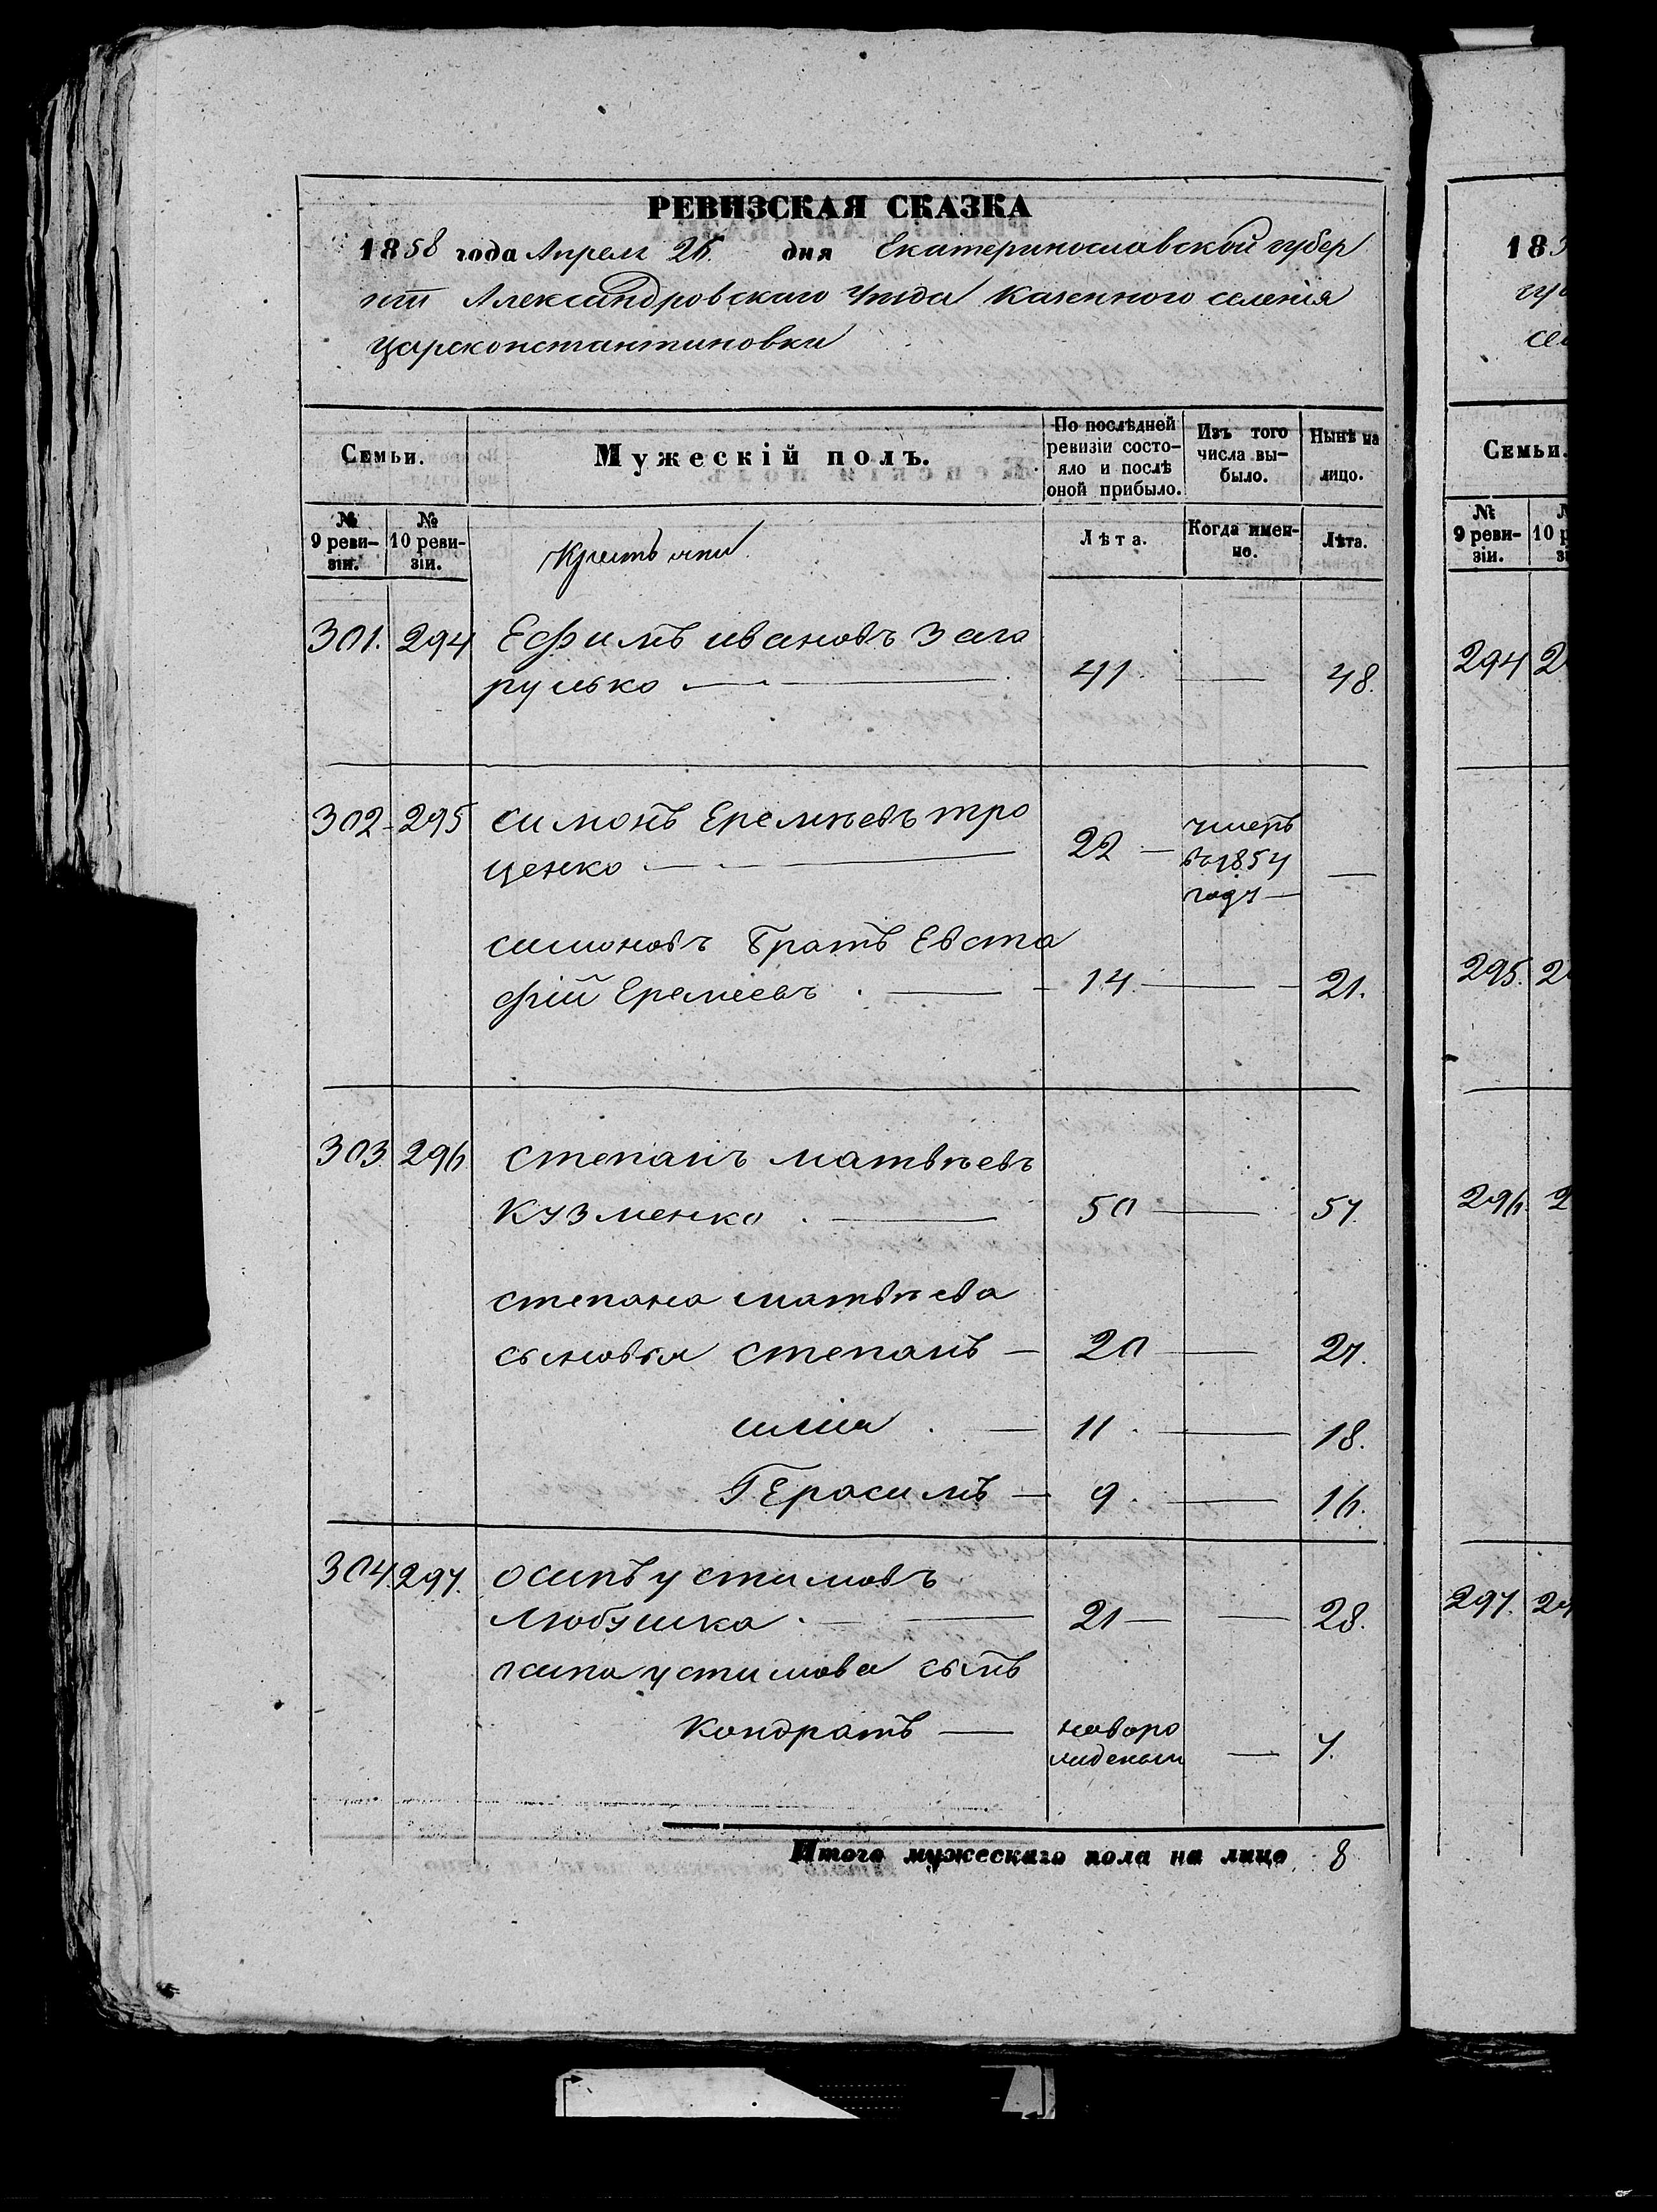 РЕВИЗСКАЯ СКАЗКА
1858 года Апреля 26. дня Екатеринославской губер
ніи Александровскаго Уезда Казенного селенія
Царсконстантиновки
Семьи.
Мужескій полъ.
По послѣдней ревизіи состо-
яло и послѣ
оной прибыло.
Изъ того
числа вы-
было.
Нынѣ на
лицо.
№
9 реви-
зіи.
№
10 реви-
зіи.
Крестьяни
Лѣта.
Когда имен-
но.
Лѣта.
301. 294 Ефимъ ивановъ Заго
рулько 41 48.
302 295 симонъ Еремѣевъ тро
ценко 22 умеръ
въ 1854
году
симоновъ братъ Евста
фій Еремеевъ 14 21.
303. 296 степанъ матвѣевъ
Кузменко 50 57.
степана матвѣева
сыновья степанъ 20 27.
илія 11 18.
Герасимъ 9 16.
304. 297. осипъ устимовъ
Любушка 21 28.
осипа устимова сынъ
Кондратъ новоро
жденый 7.
Итого мужескаго пола на лицо 8
18
Семьи.
№
9 реви-
зіи.
294
295.
296.
297.